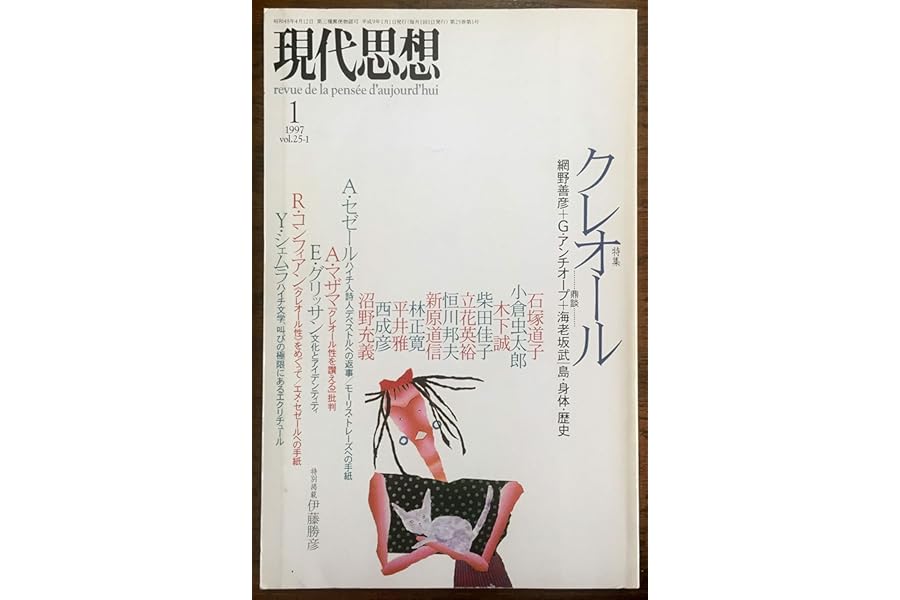 昭和48年4月12日 第三種郵便物認可 平成9年1月1日発行(毎月1回1日発行) 第25巻第1号
現代思想
revue de la pensée d'aujourd'hui
1
1997
vol.25-1
特集
クレオール
鼎談
網野善彦+G・アンチオープ+海老坂武|島・身体・歴史
石塚道子
小倉虫太郎
木下誠
柴田佳子
立花英裕
恒川邦夫
新原道信
林正寛
平井雅
西成彦
沼野充義
A・セゼール ハイチ人詩人デペストルへの返事/モーリス・トレーズへの手紙
A・マザマ 『クレオール性を讃える』批判
E・グリッサン 文化とアイデンティティ
R・コンフィアン 〈クレオール性〉をめぐって/エメ・セゼールへの手紙
Y・シェムラ ハイチ文学、叫びの極限にあるエクリチュール
特別掲載 伊藤勝彦